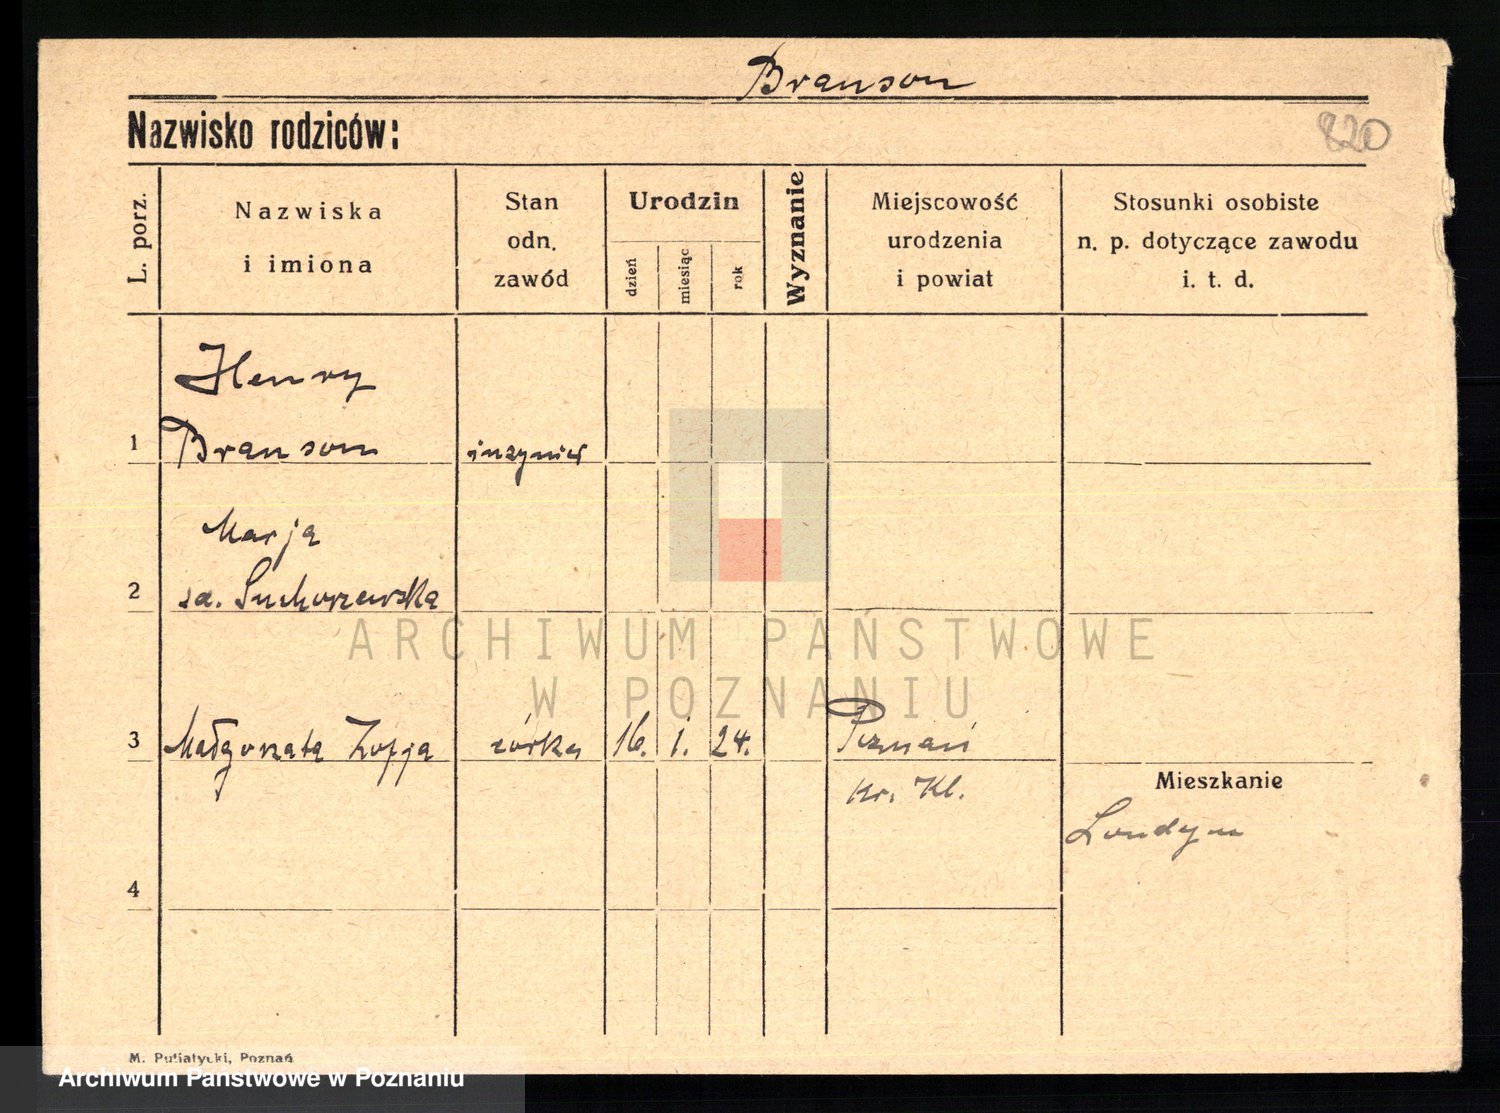 Branson
Nazwisko rodziców:
820
L. porz.
Nazwiska
i imiona
Stan
odn.
zawód
Urodzin
dzień
miesiąc
rok
Wyznanie
Miejscowość
urodzenia
i powiat
Stosunki osobiste
n. p. dotyczące zawodu
i. t. d.
Henry
1 Branson inżynier
Marja
2 zd. Suchorzewska
ARCHIWUM PAŃSTWOWE
W POZNANIU
3 Małgorzata Zofja córka 16. 1. 24. Poznań
Mieszkanie
kr. Kl.
Londyn
4
M. Putiatycki, Poznań
Archiwum Państwowe w Poznaniu